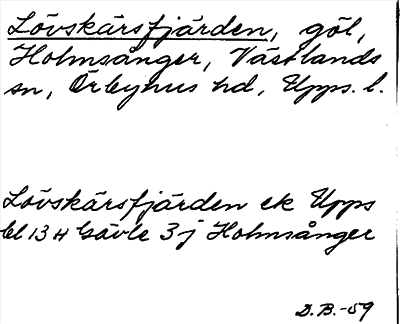 Lövskärsfjärden, göl,
Holmsånger, Västlands
sn, Örbyhus hd, Upps. l.
Lövskärsfjärden ek Upps
bl 13 H Gävle 3 j Holmsånger
D.B.-59